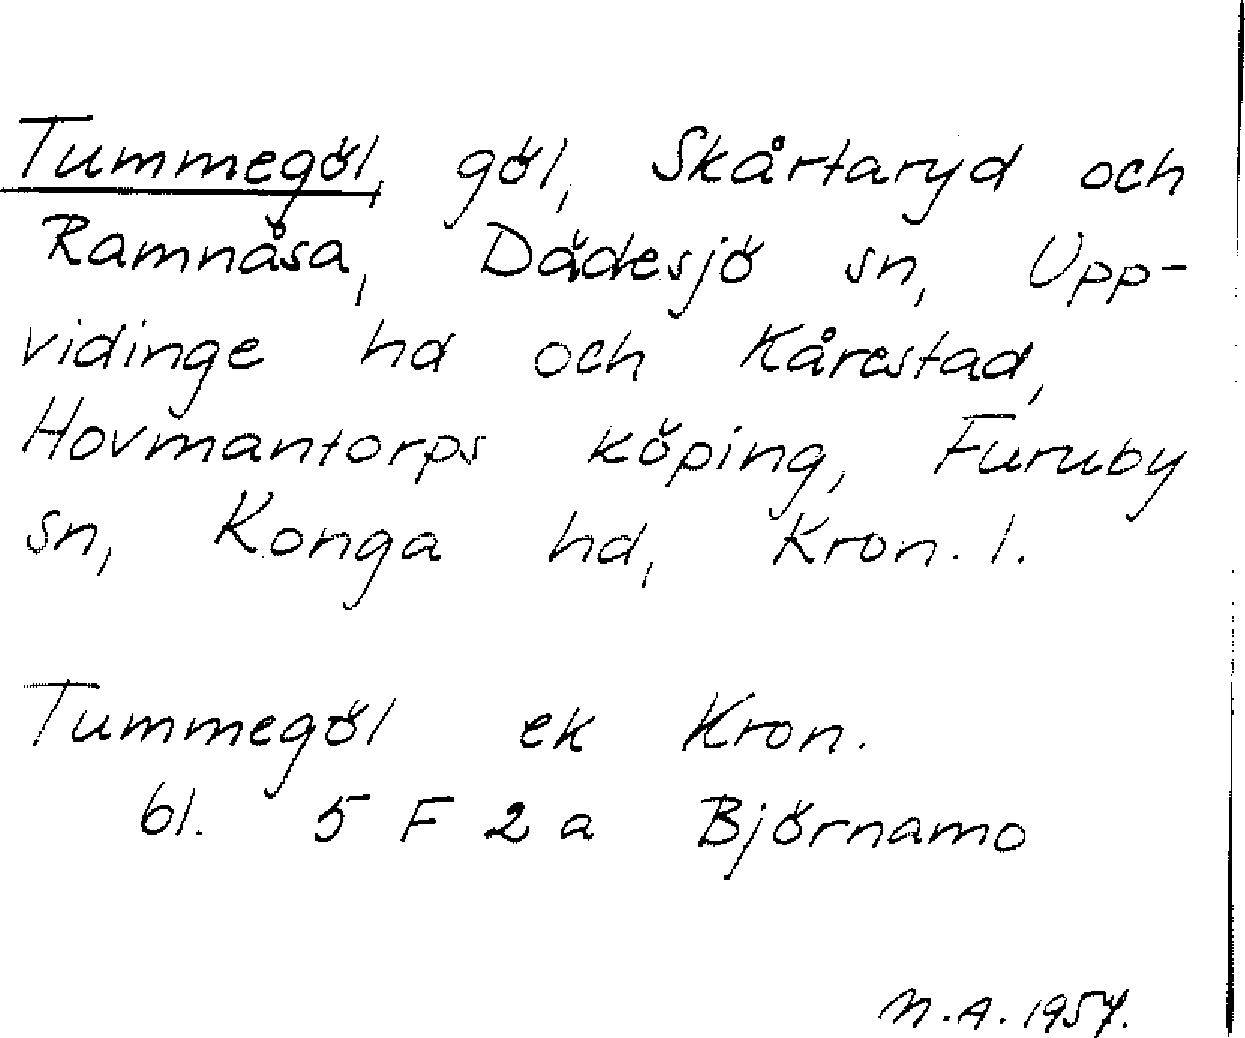 Tummegöl, göl, Skårtaryd och
Ramnåsa, Dädesjö sn, Upp-
vidinge hd och Kårestad,
Hovmantorps köping, Furuby
sn, Konga hd, Kron. l.
Tummegöl ek Kron.
bl. 5 F 2 a Björnamo
N.A. 1957.